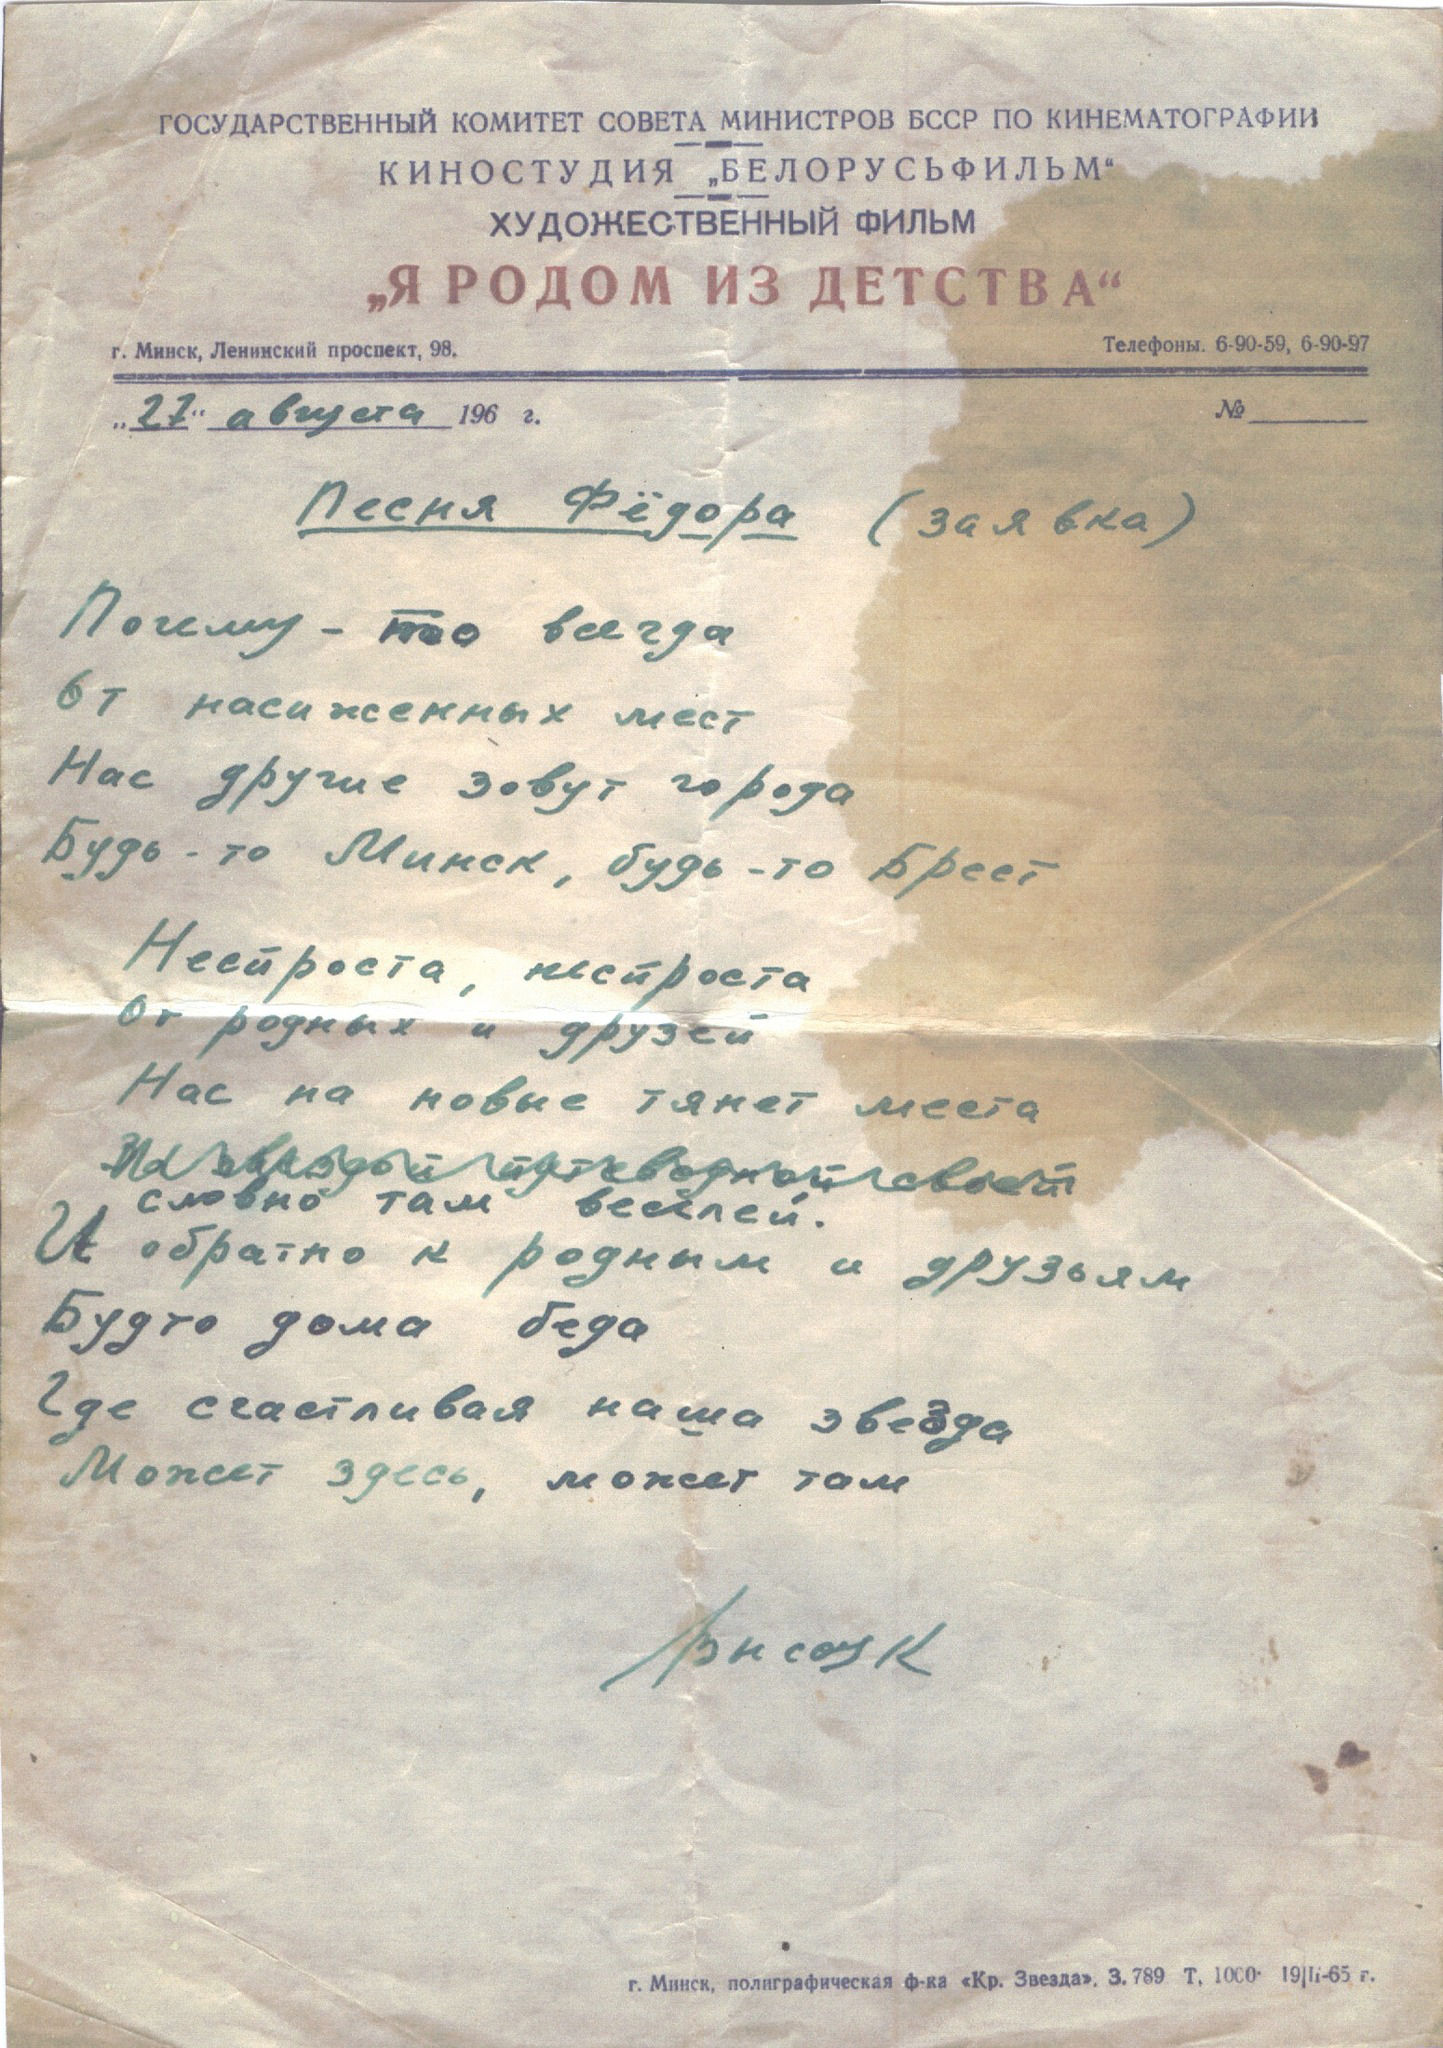 ГОСУДАРСТВЕННЫЙ КОМИТЕТ СОВЕТА МИНИСТРОВ БССР ПО КИНЕМАТОГРАФИИ
КИНОСТУДИЯ „БЕЛОРУСЬФИЛЬМ“
ХУДОЖЕСТВЕННЫЙ ФИЛЬМ
„Я РОДОМ ИЗ ДЕТСТВА“
г. Минск, Ленинский проспект, 98. Телефоны. 6-90-59, 6-90-97
„27“ августа 196 г. №
Песня Фёдора (заявка)
Почему-то всегда
От насиженных мест
Нас другие зовут города
Будь-то Минск, будь-то Брест
Неспроста, неспроста
От родных и друзей
Нас на новые тянет места
словно там веселей.
И обратно к родным и друзьям
Будто дома беда
Где счастливая наша звезда
Может здесь, может там
г. Минск, полиграфическая ф-ка «Кр. Звезда». З. 789 Т. 1000 19|II-65 г.